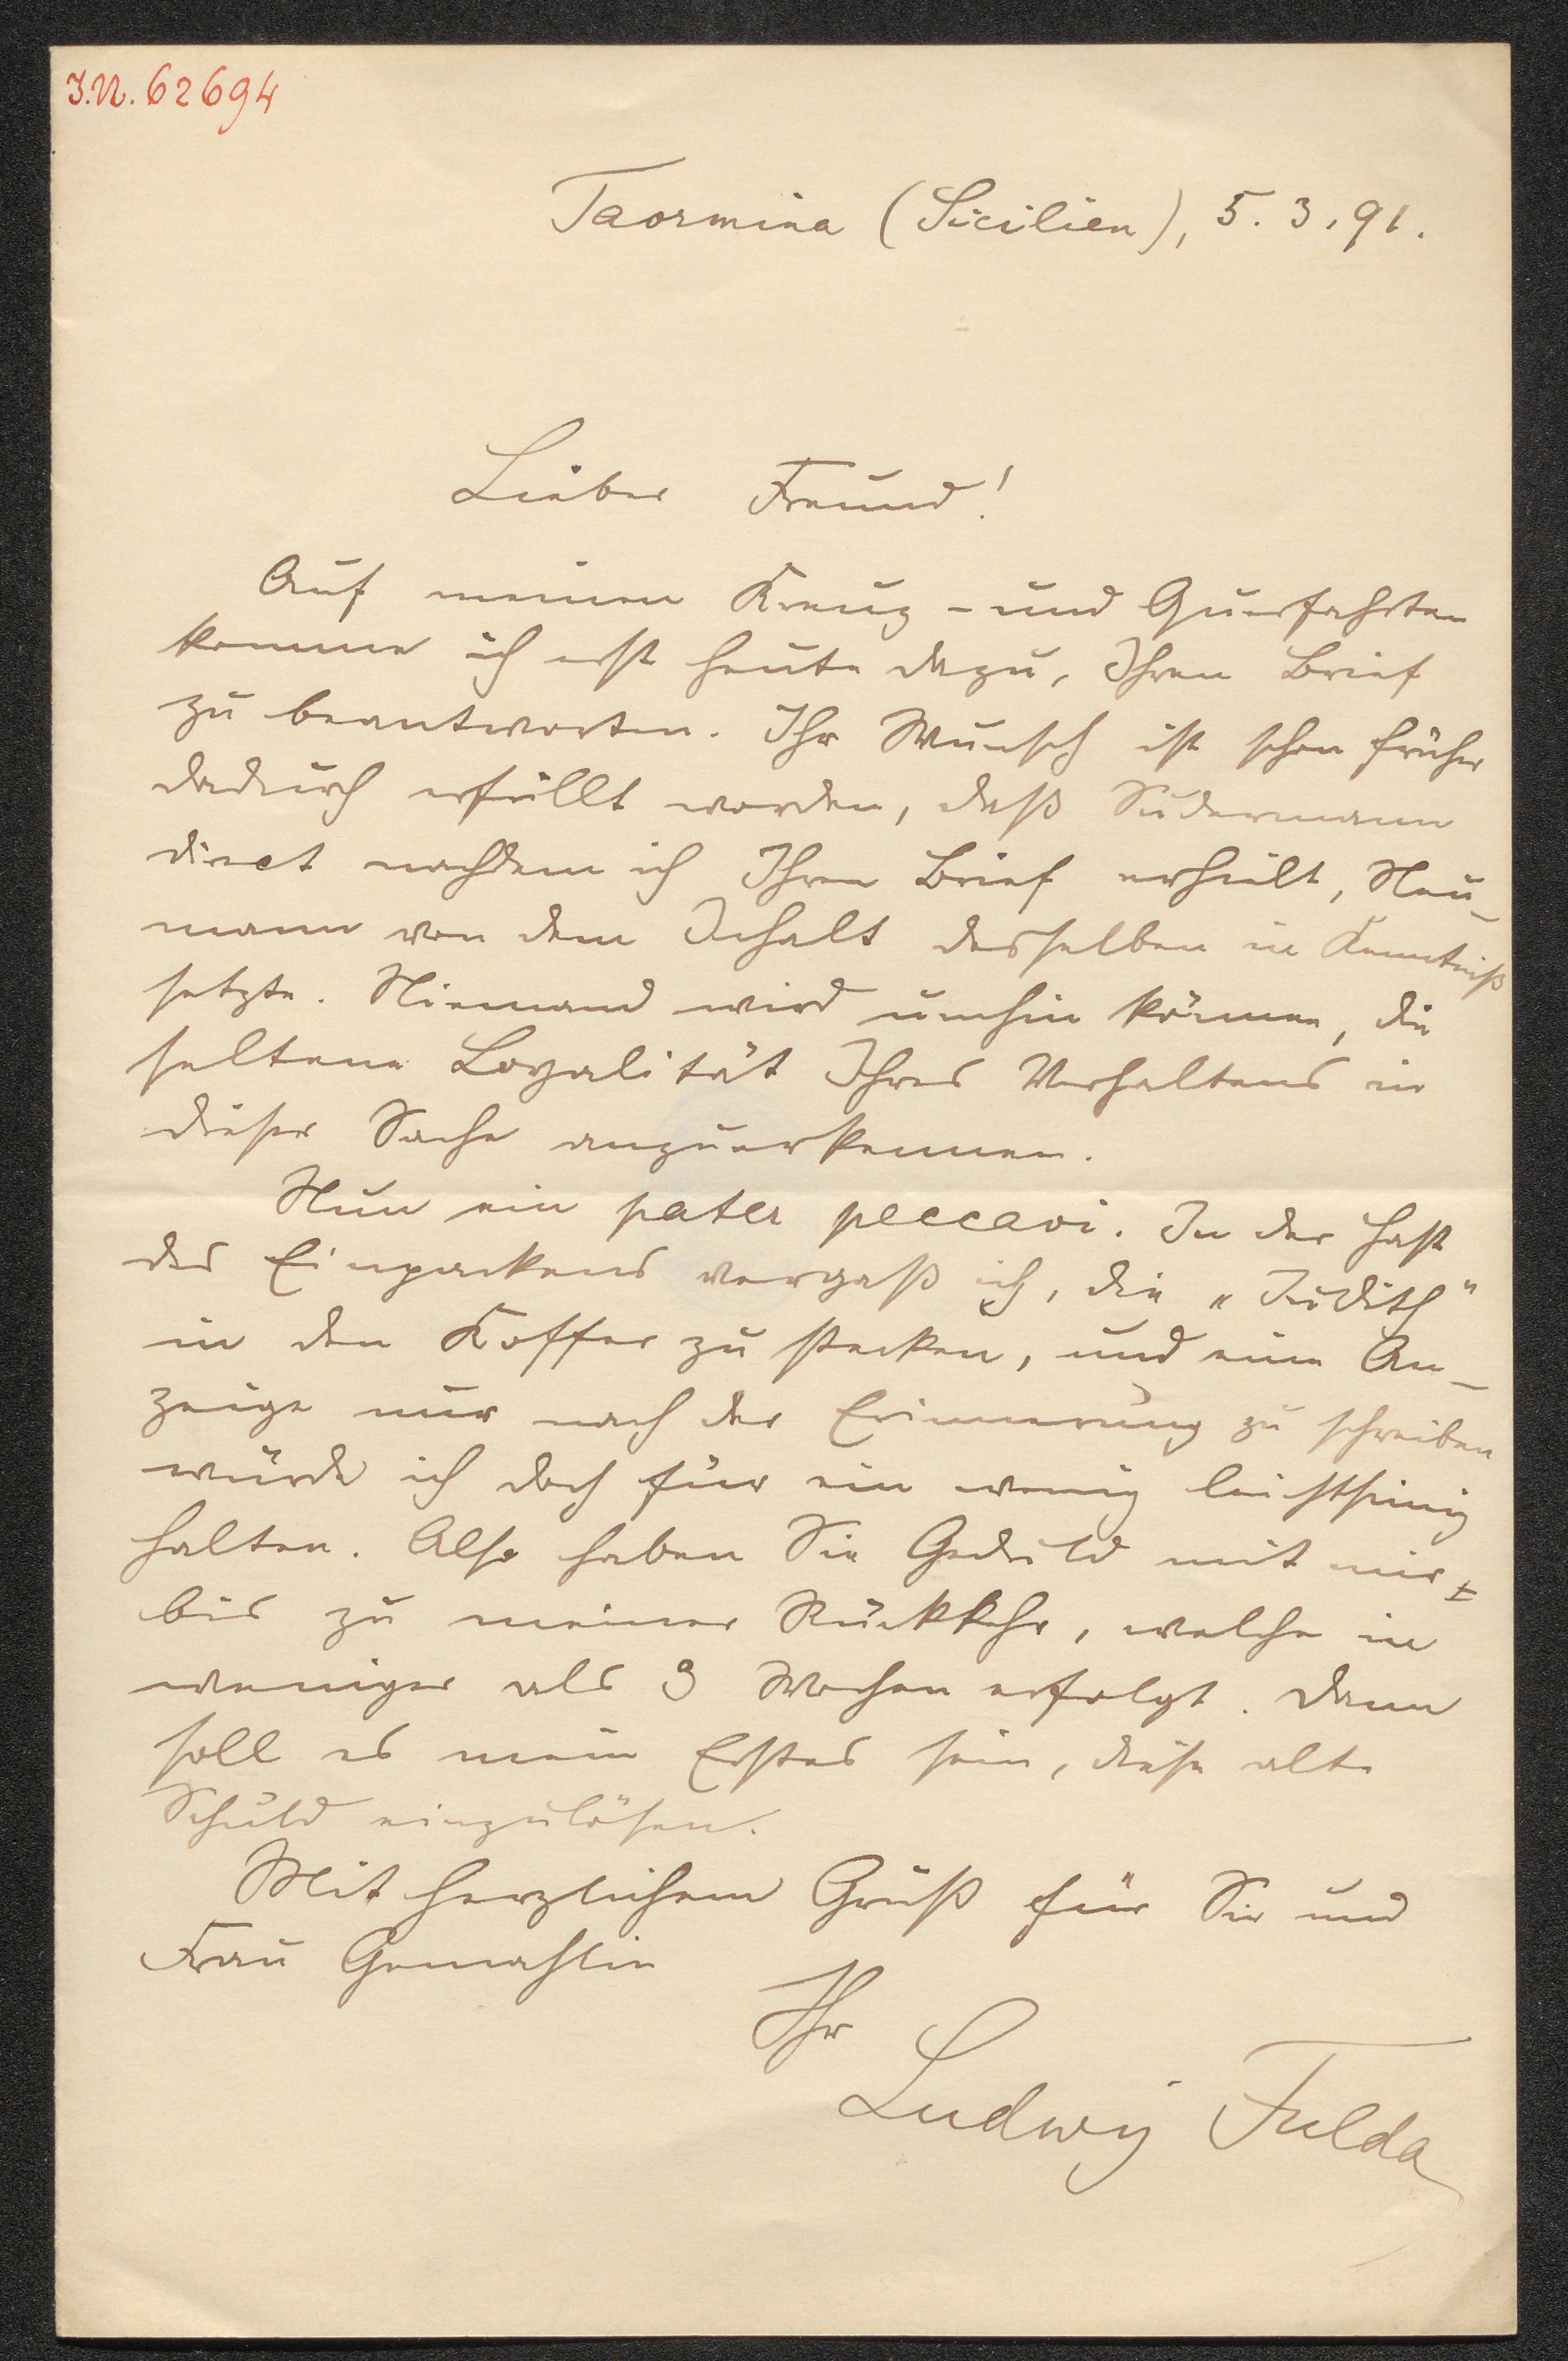 I.N. 62694
Taormina (Sicilien), 5.3.91.
Lieber Freund!
Auf meinen Kreuz- und Querfahrten
komme ich erst heute dazu, Ihren Brief
zu beantworten. Ihr Wunsch ist schon früher
dadurch erfüllt worden, daß Sudermann
direct nachdem ich Ihren Brief erhielt, Neu-
mann von dem Inhalt desselben in Kenntniß
setzte. Niemand wird umhin können, die
seltene Loyalität Ihres Verhaltens in
dieser Sache anzuerkennen.
Nun ein pater peccavi. In der Hast
des Einpackens vergaß ich, die „Judith"
in den Koffer zu stecken, und eine An-
zeige nur nach der Erinnerung zu schreiben
würde ich doch für ein wenig leichtsinnig
halten. Also haben Sie Geduld mit mir
bis zu meiner Rückkehr, welche in
weniger als 3 Wochen erfolgt. Dann
soll es mein Erstes sein, diese alte
Schuld einzulösen.
Mit herzlichem Gruß für Sie und
Frau Gemahlin
Ihr
Ludwig Fulda